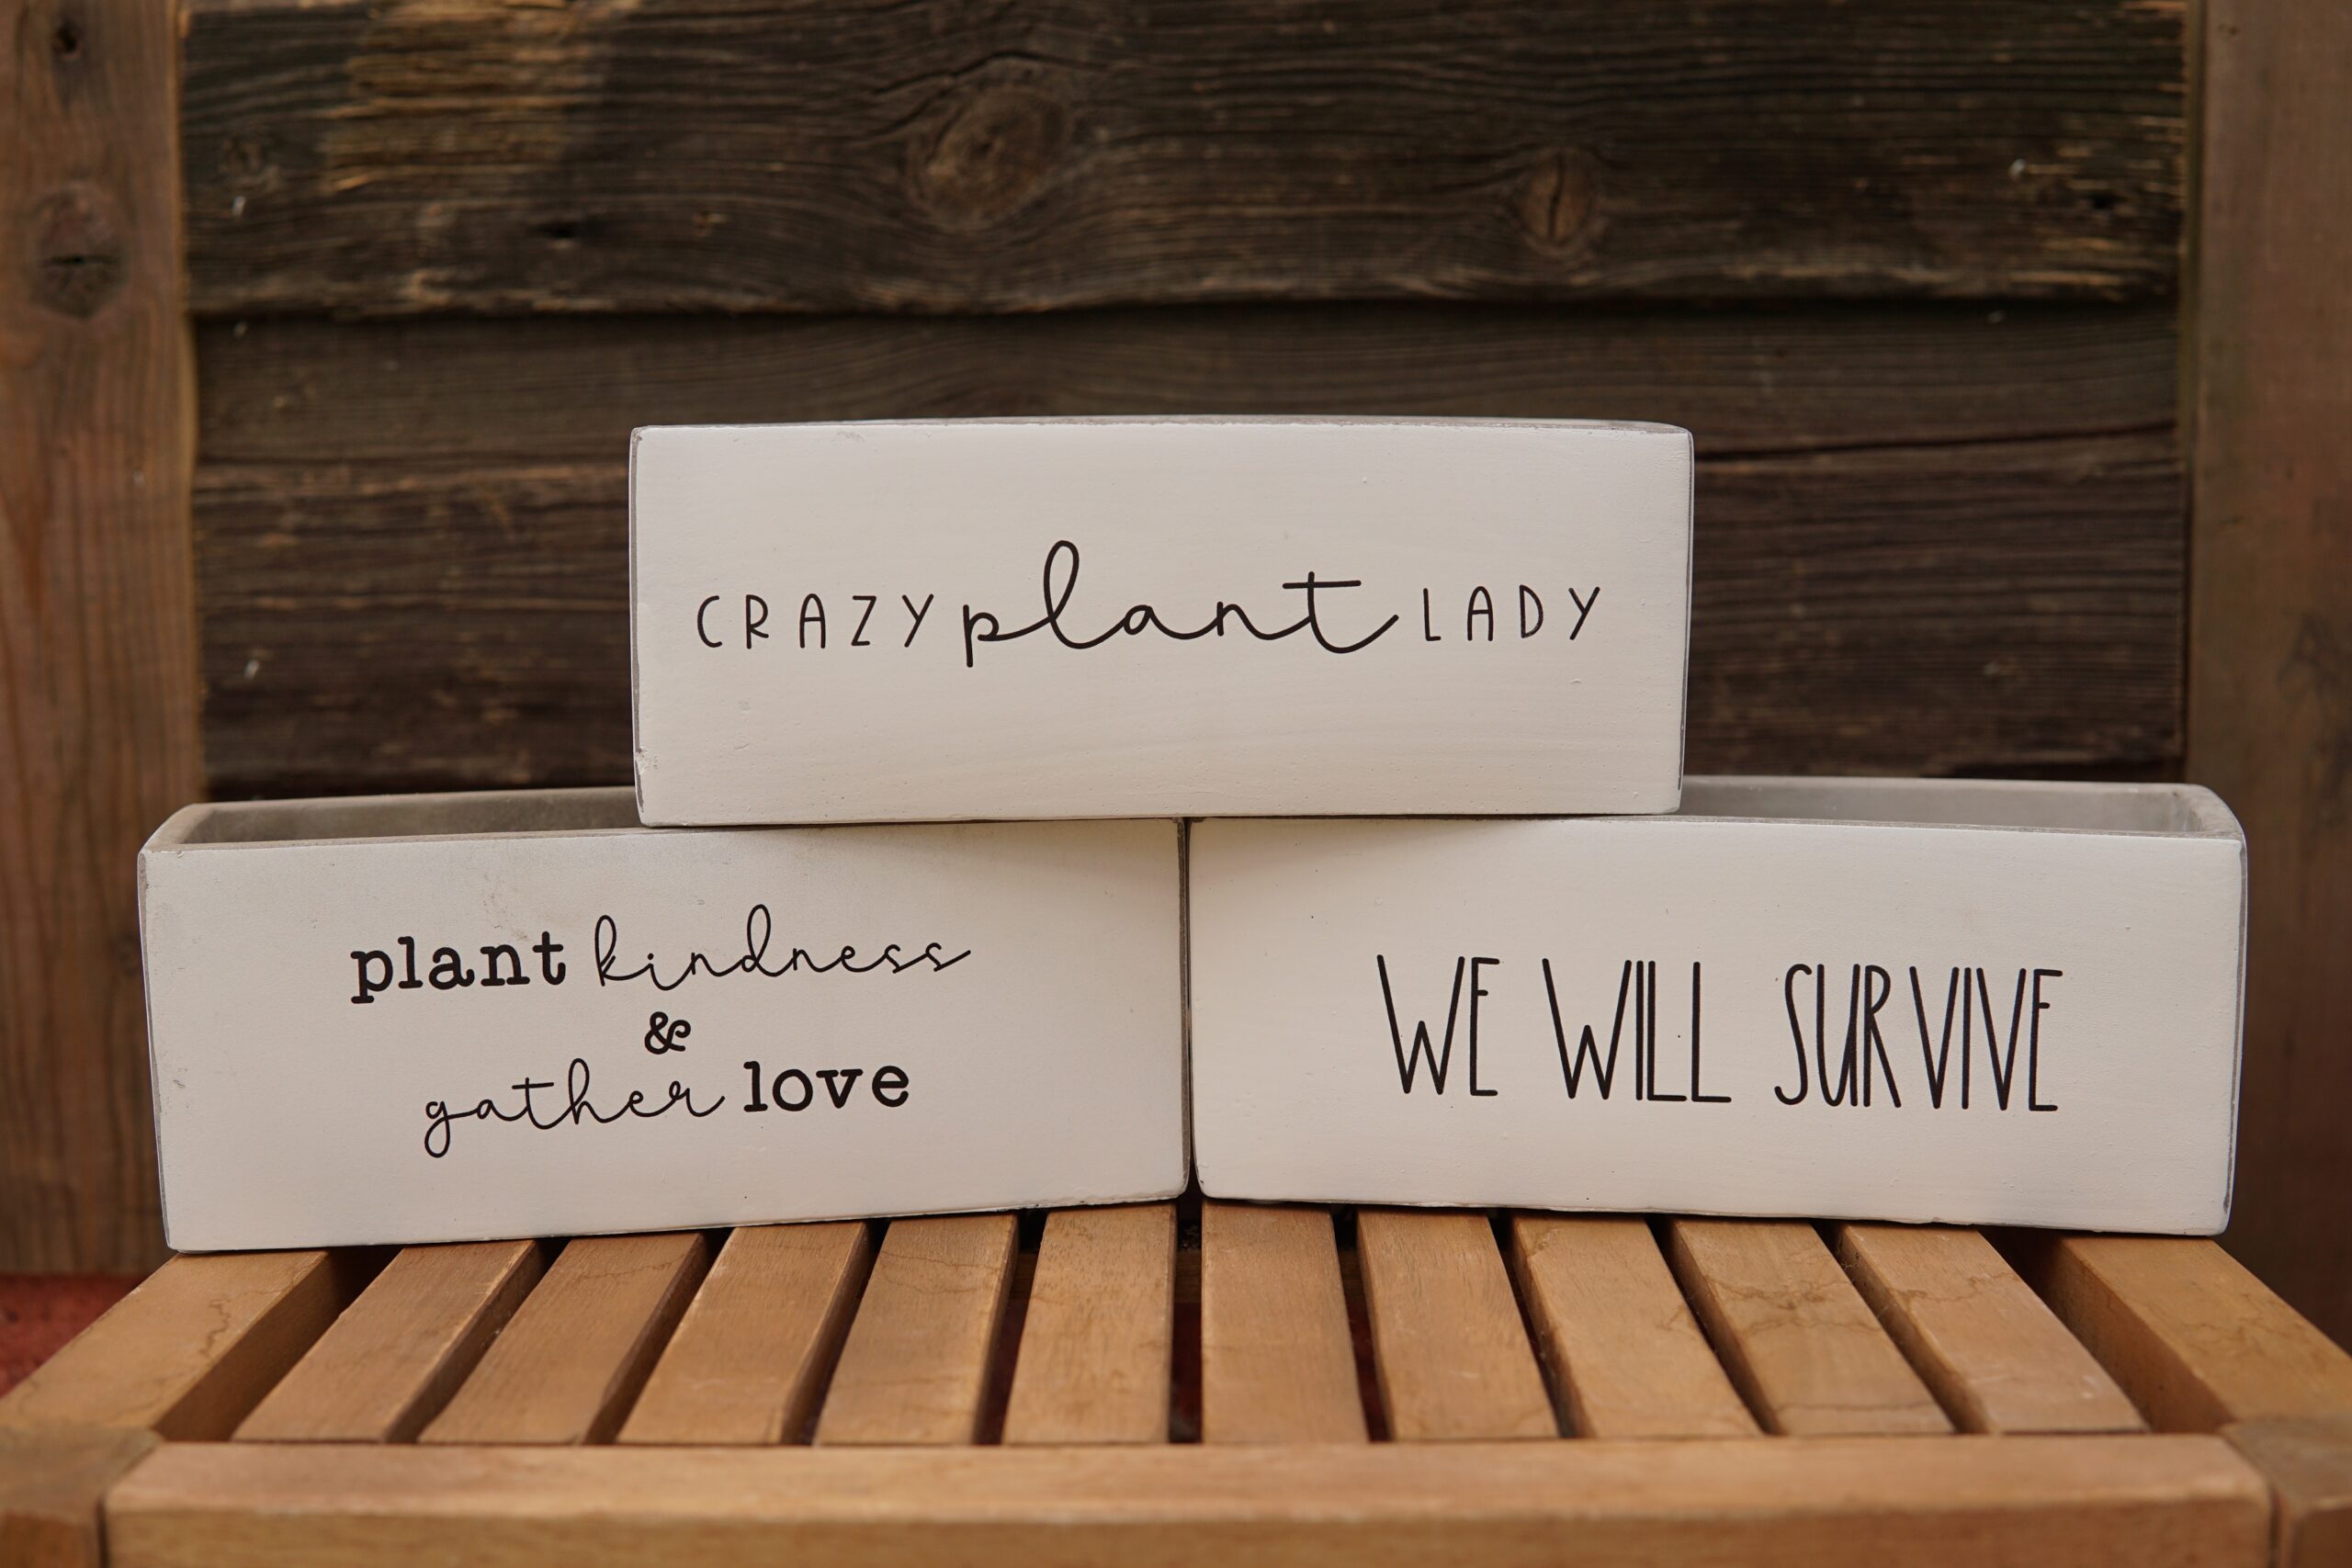 CRAZY plant LADY
plant kindness
&
gather love
WE WILL SURVIVE